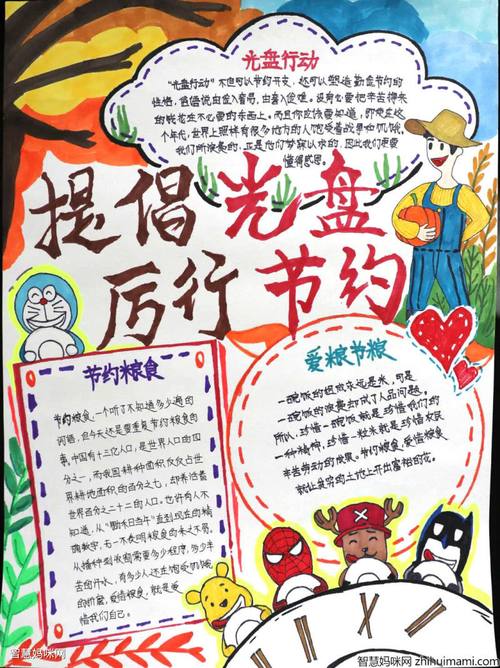 光盘行动
"光盘行动"不但可以节约开支，还可以塑造勤俭节约的
性格，俗话说由俭入奢易，由奢入俭难，没有必要把辛苦得来
的钱花在不必要的东西上。而且你应该要知道，即使在这
个年代，世界上照样有很多地方的人饱受着战争和饥饿，
我们所浪费的，正是他们梦寐以求的，因此我们更要
懂得感恩。
提倡光盘
厉行节约
节约粮食
节约粮食，一个听了不知道多少遍的
词语，但今天还是要重复节约粮食的
中国有十三亿人口，是世界人口的四
分之一，而我国耕种面积仅仅占世
界耕地面积的百分之七，却养活着
世界百分之二十二的人口。也许有人不
知道，从"锄禾日当午"直到现在的精
确数字，无一不表明粮食的来之不易，
从播种到收割需要多少程序，多少辛
苦的汗水，有多少人还在饱受饥饿
的折磨，爱惜粮食，就是爱
惜我们自己。
爱粮节粮
一碗饭的组成永远是米，可是
一碗饭的浪费却成了人品问题。
所以，珍惜一碗饭就是珍惜我们的
一种精神，珍惜一粒米就是珍惜农民
辛苦劳动的成果。节约粮食，爱惜粮食
就让贫穷的土地上开出富裕的花。
智慧妈咪网
智慧妈咪网 zhihuimami.com